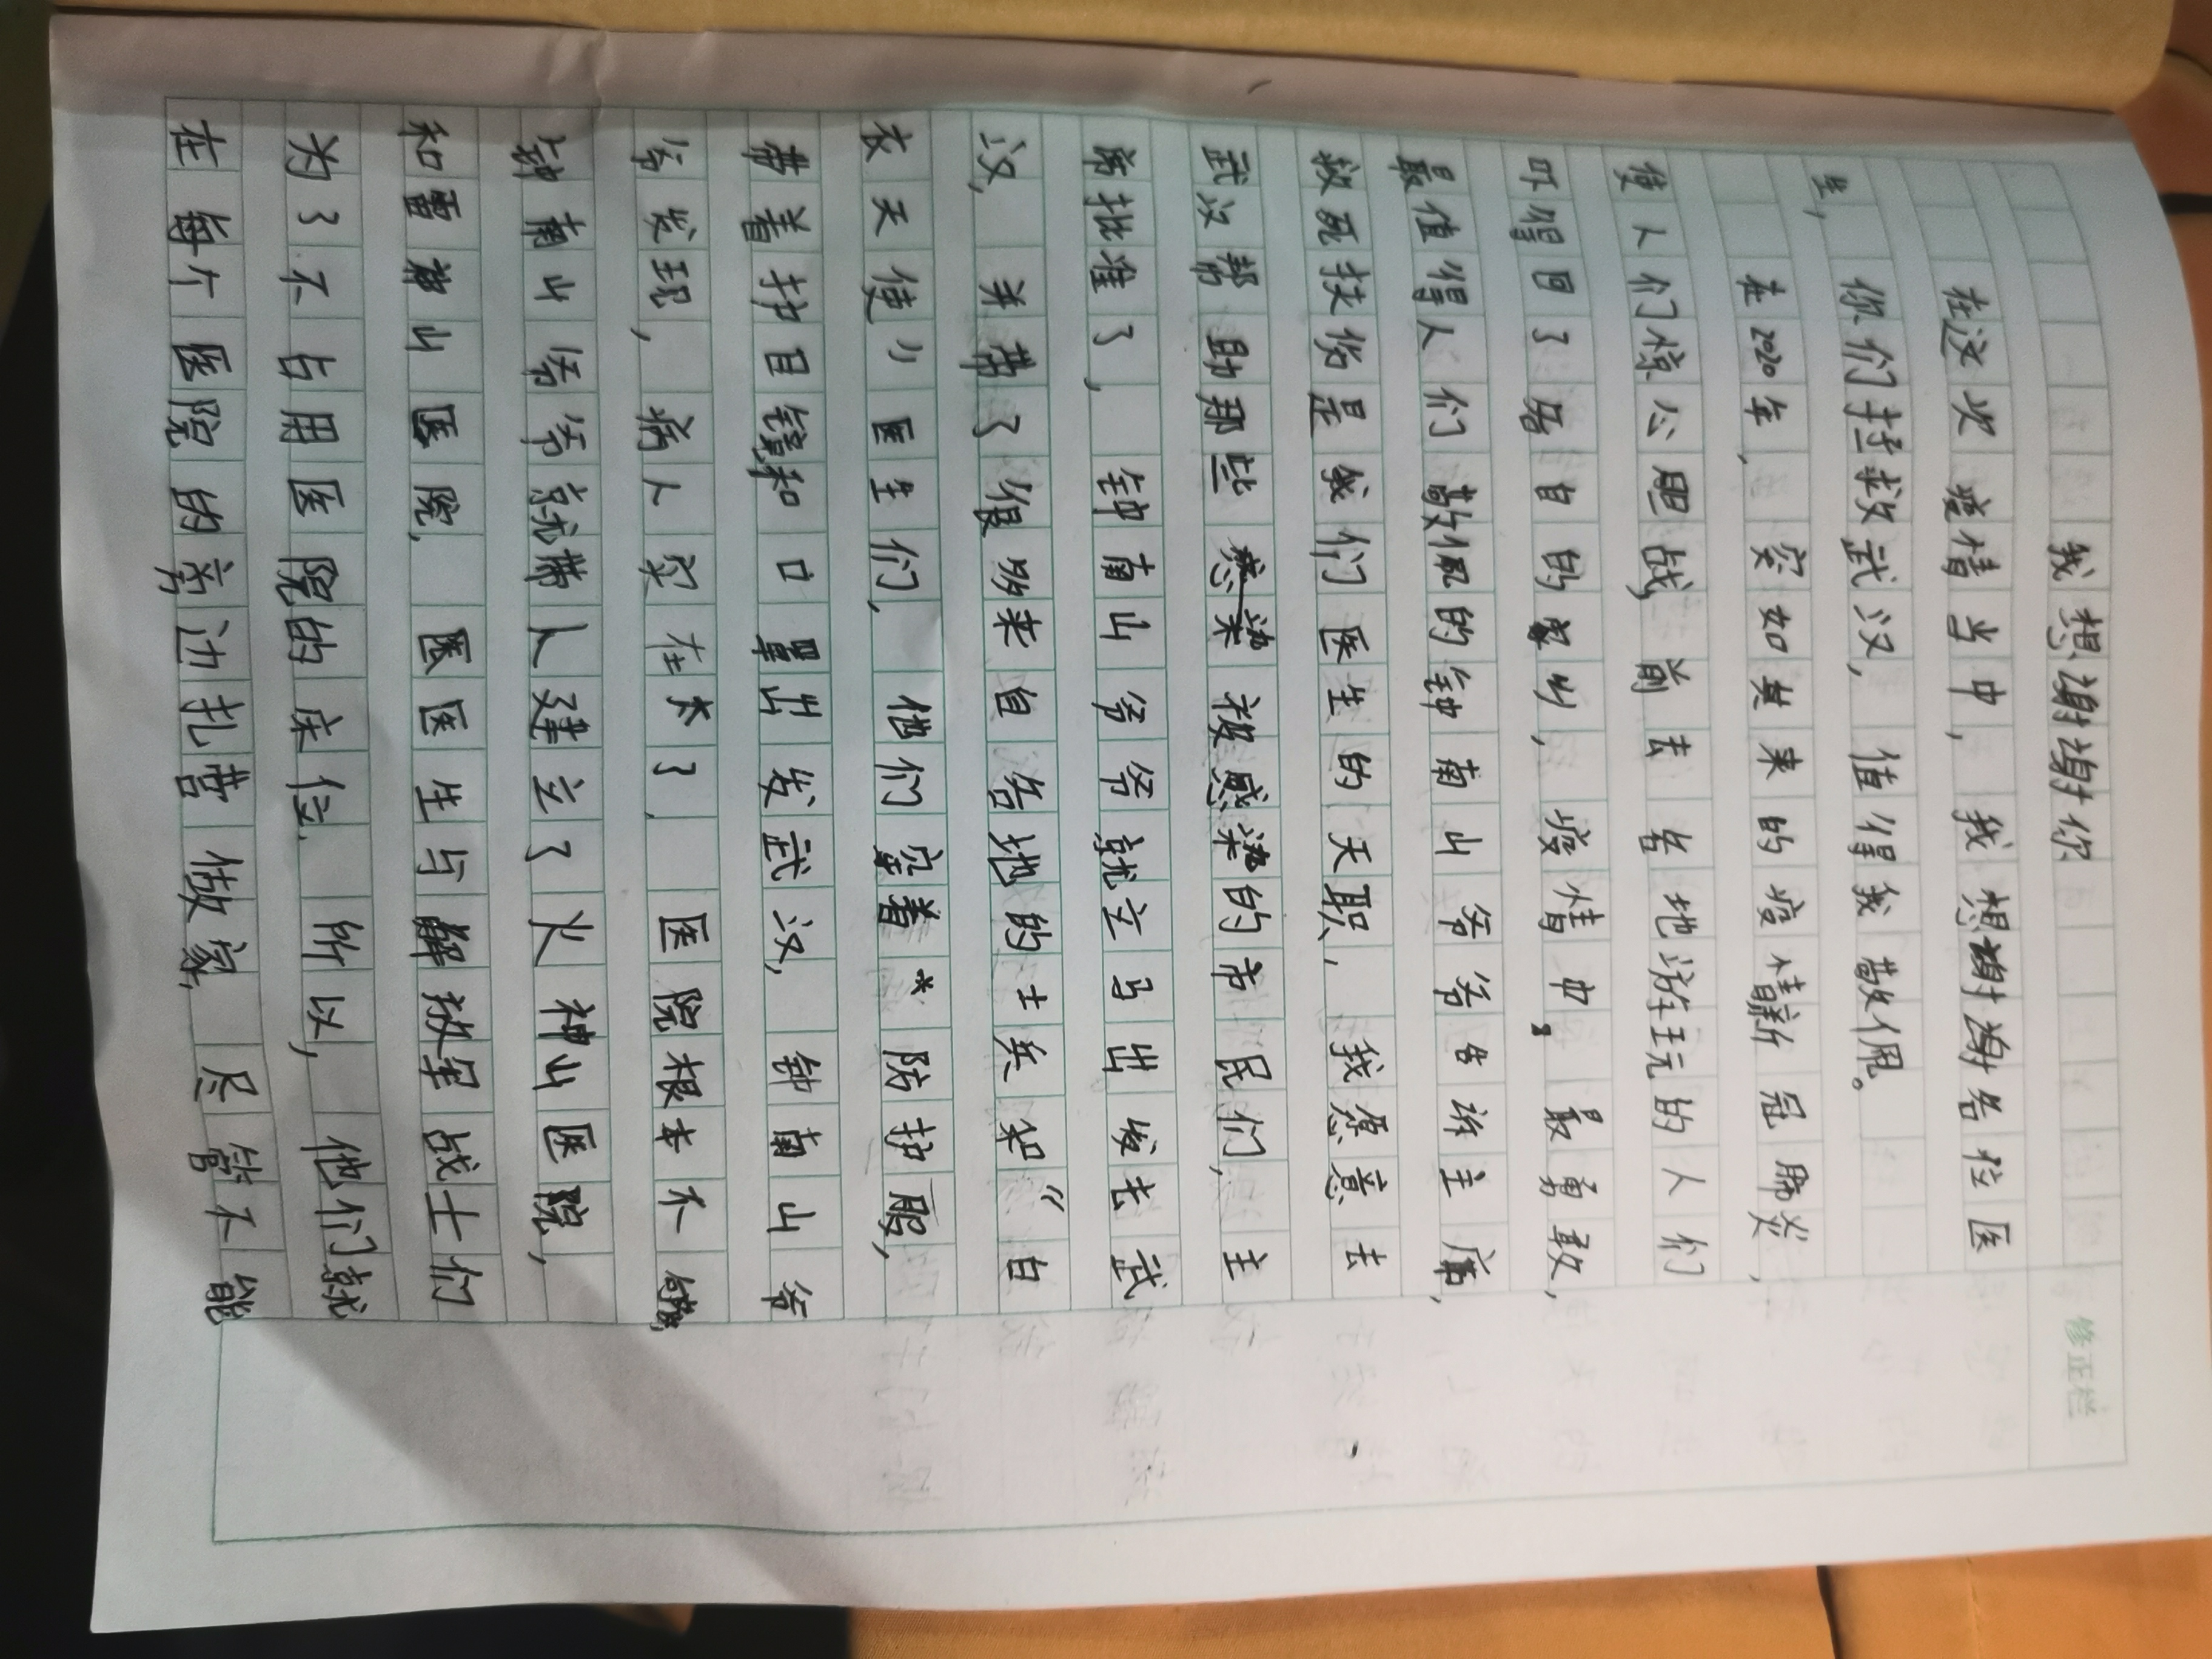 我想谢谢你
在这次疫情当中，我想谢谢各位医
生，你们拯救武汉，值得我敬佩。
在2020年，突如其来的疫情新冠肺炎，
使人们惊心胆战，前去各地游玩的人们
吓得回了各自的家乡，疫情中，最勇敢，
最值得人们敬佩的钟南山爷爷告诉主席，
救死扶伤是我们医生的天职，我愿意去
武汉帮助那些被感染的市民们，主
席批准了，钟南山爷爷就立马出发去武
汉，并带了很多来自各地的士兵和“白
衣天使”医生们，他们穿着防护服，
带着护目镜和口罩出发武汉，钟南山爷
爷发现，病人实在太了，医院根本不够，
钟南山爷爷就带人建立了火神山医院，
和雷神山医院，医医生与解放军战士们
为了不占用医院的床位，所以，他们就
在每个医院的旁边扎营做家，尽管不能
修正栏